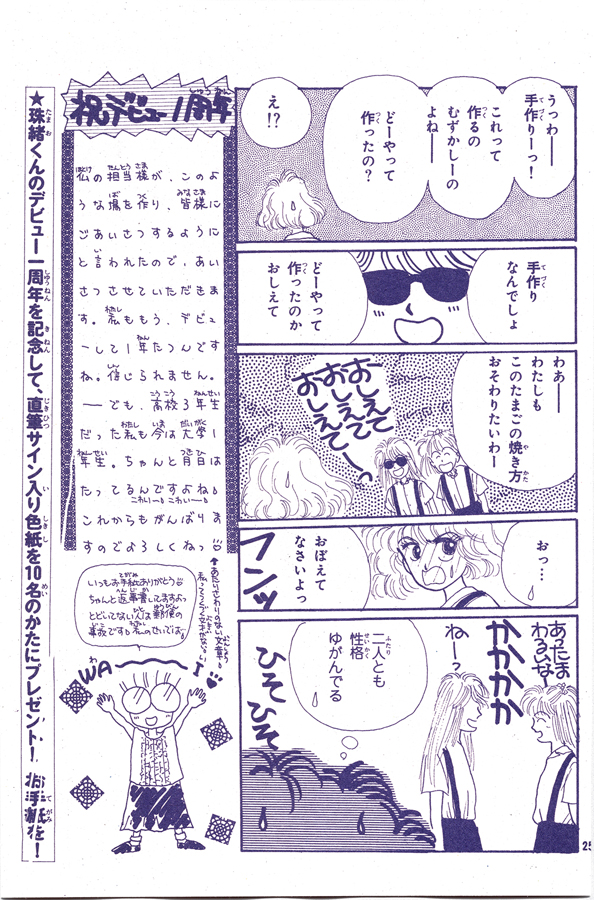 うっわ――
手作りーっ！
これって
作るの
むずかしーの
よね――
どーやって
作ったの？
え!?
手作り
なんでしょ
どーやって
作ったのか
おしえて
わあ――
わたしも
このたまごの焼き方
おそわりたいわー
おしえて
おしえて
おしえてー
おっ…
おぼえて
なさいよっ
フンッ
あったま
わるいな
ねーっ
かかかか
二人とも
性格
ゆがんでる
ひそひそ
25
祝デビュー1周年
仏の担当様が、このよ
うな場を作り、皆様に
ごあいさつするように
と言われたので、あい
さつさせていただきま
す。私ももう、デビュ
ーして1年たつんです
ね。信じられません。
――でも、高校3年生
だった私も今は大学1
年生。ちゃんと月日は
たってるんですよね。
これいー。これいー。
これからもがんばりま
すのでよろしくねっ
↑あたりさわりのない文章。
いつもお手紙ありがとう
ちゃんと返事書いてますよっ
とどいてない人は郵便の
事故です。私のせいでは…
WA――I♥
★珠緒くんのデビュー一周年を記念して、直筆サイン入り色紙を10名のかたにプレゼント！お手紙を！